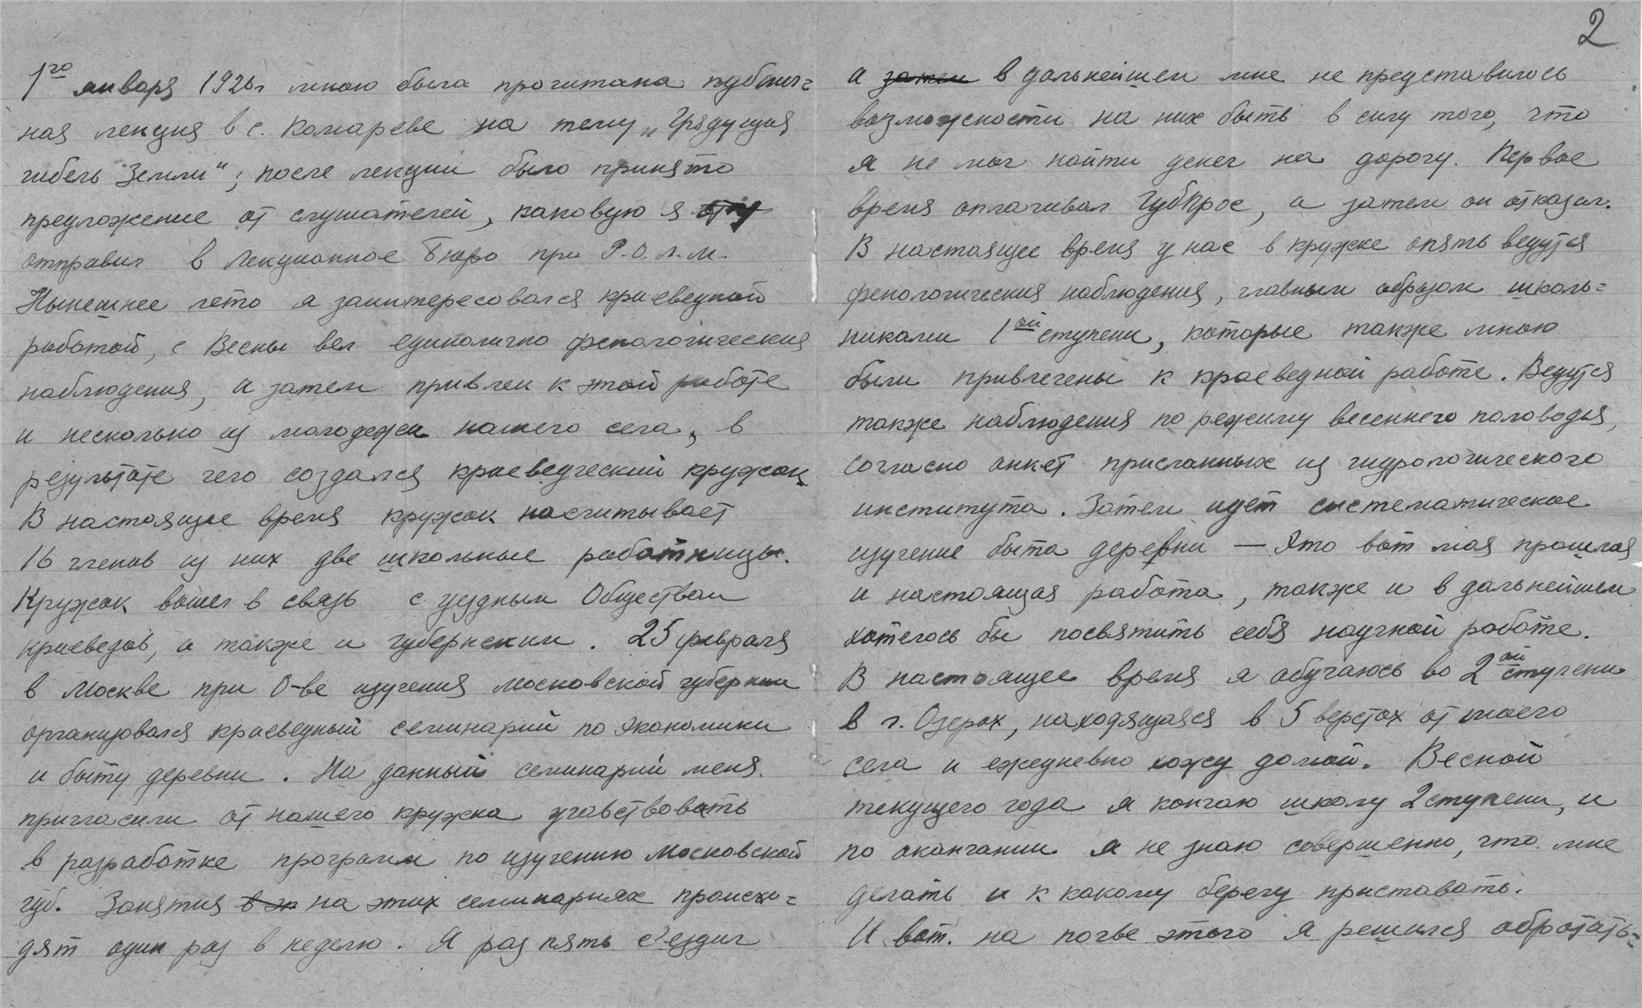 1го января 1926г мною была прочитана публич=
ная лекция в с. Комареве на тему „Грядущая
гибель Земли“; после лекции было принято
предложение от слушателей, каковую я
отправил в Лекционное Бюро при Р.О.Л.М.
Нынешнее лето я заинтересовался краеведной
работой, с Весны вел единолично фенологическия
наблюдения, а затем привлек к этой работе
и несколько из молодежи нашего села, в
результате чего создался краеведческий кружок
В настоящее время кружок насчитывает
16 членов из них две школьные работницы.
Кружок вошел в связь с уездным Обществом
краеведов, а также и губернским. 25 февраля
в Москве при О-ве изучения московской губернии
организовался краеведный семинарий по экономики
и быту деревни. На данный семинарий меня
пригласили от нашего кружка учавствовать
в разработке программ по изучению Московской
губ. Занятия на этих семинариях происхо=
дят один раз в неделю. Я раз пять съездил
2
а затем в дальнейшем мне не представилось
возможности на них быть в силу того, что
я не мог найти денег на дорогу. Первое
время оплачивал Губпрос, а затем он отказал.
В настоящее время у нас в кружке опять ведутся
фенологическия наблюдения, главным образом школь=
никами 1ой ступени, которые также мною
были привлечены к краеведной работе. Ведутся
также наблюдения по режиму весеннего половодья,
согласно анкет присланных из гидрологического
института. Затем идет систематическое
изучение быта деревни — Это вот моя прошлая
и настоящая работа, также и в дальнейшем
хотелось бы посвятить себя научной работе.
В настоящее время я обучаюсь во 2ой ступени
в г. Озерах, находящаяся в 5 верстах от моего
села и ежедневно хожу домой. Весной
текущего года я кончаю школу 2 ступени, и
по окончании я не знаю совершенно, что мне
делать и к какому берегу приставать.
И вот. на почве этого я решился обротать=